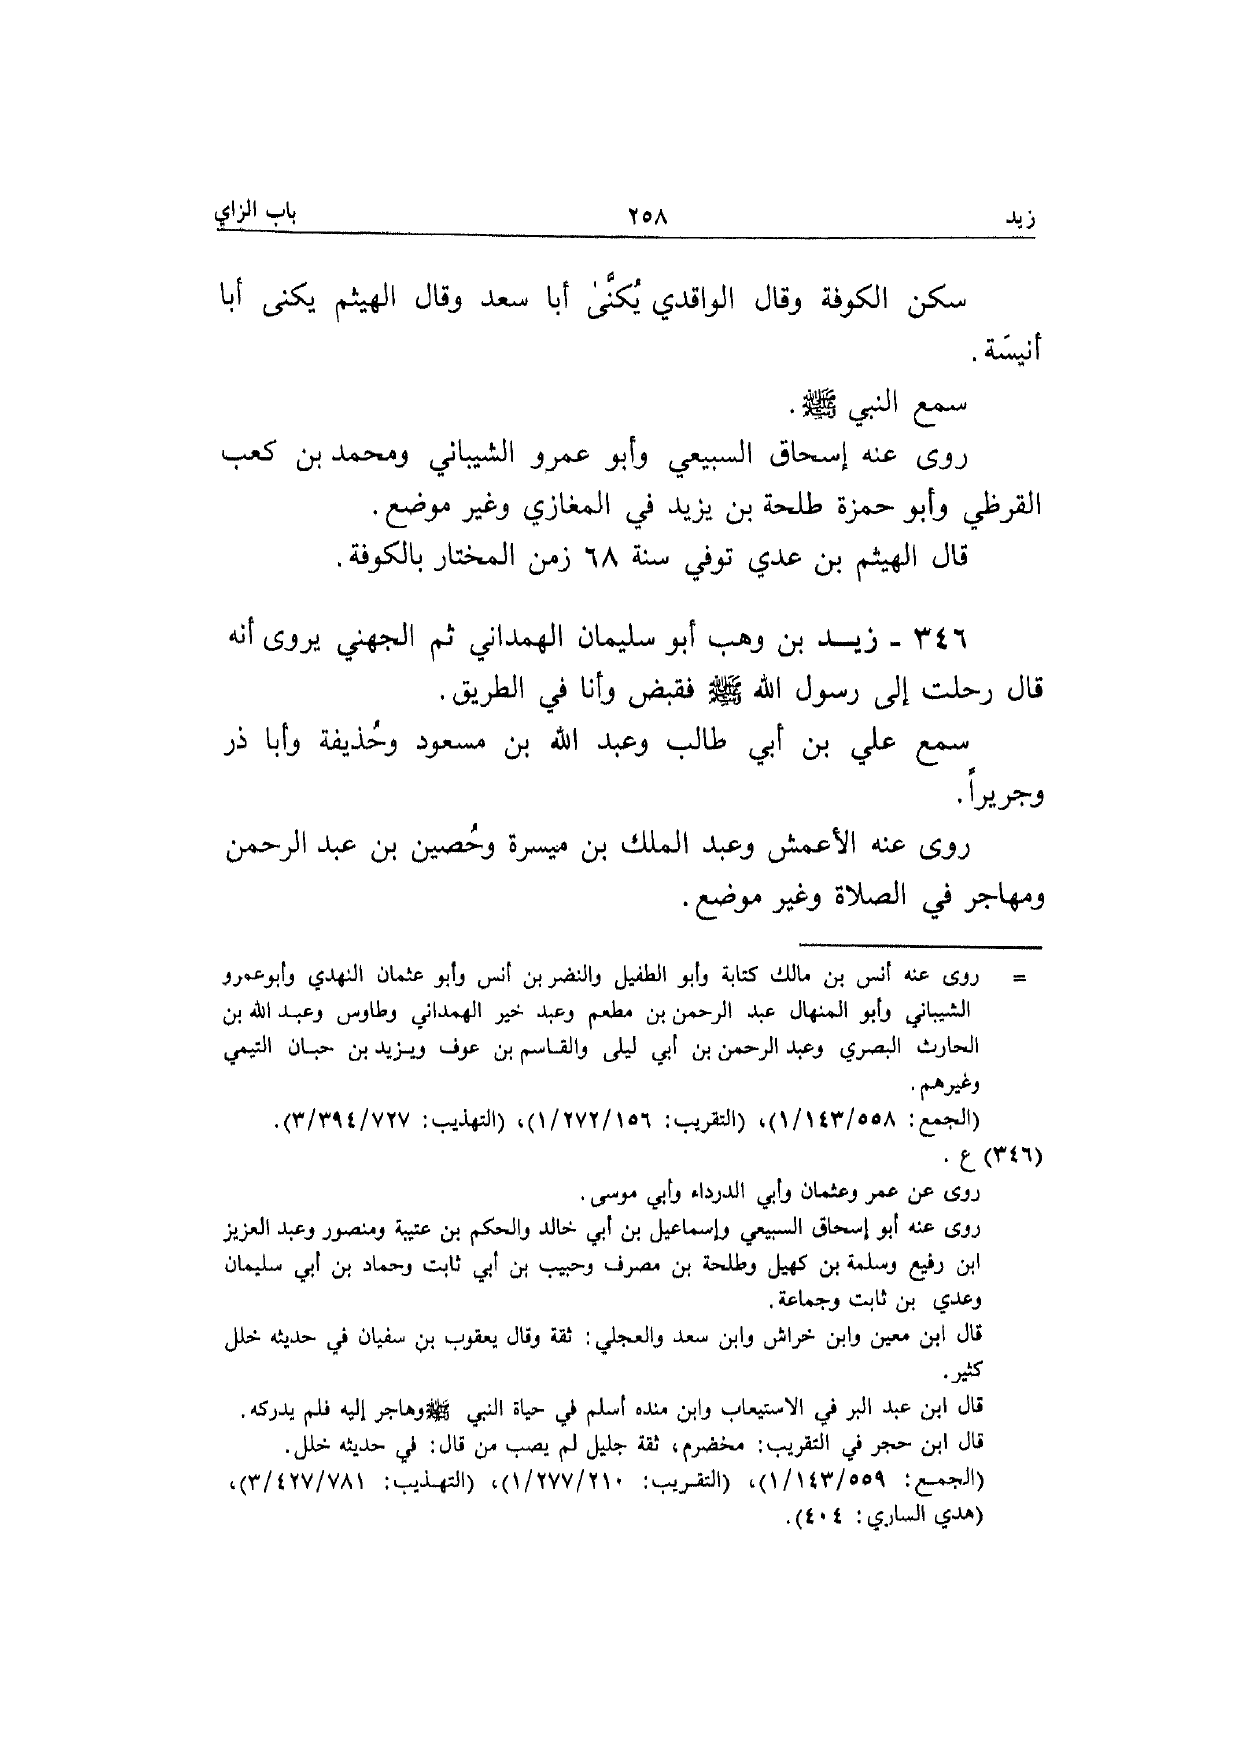 زيد ٢٥٨ باب الزاي
سكن الكوفة وقال الواقدي يُكنَّىٰ أبا سعد وقال الهيثم يكنى أبا
أنيسَة .
سمع النبي ﷺ .
روى عنه إسحاق السبيعي وأبو عمرو الشيباني ومحمد بن كعب
القرظي وأبو حمزة طلحة بن يزيد في المغازي وغير موضع .
قال الهيثم بن عدي توفي سنة ٦٨ زمن المختار بالكوفة .
٣٤٦ - زيـــد بن وهب أبو سليمان الهمداني ثم الجهني يروى أنه
قال رحلت إلى رسول الله ﷺ فقبض وأنا في الطريق .
سمع علي بن أبي طالب وعبد الله بن مسعود وحُذيفة وأبا ذر
وجريراً .
روى عنه الأعمش وعبد الملك بن ميسرة وحُصين بن عبد الرحمن
ومهاجر في الصلاة وغير موضع .
= روى عنه أنس بن مالك كتابة وأبو الطفيل والنضر بن أنس وأبو عثمان النهدي وأبو عمرو
الشيباني وأبو المنهال عبد الرحمن بن مطعم وعبد خير الهمداني وطاوس وعبـد الله بن
الحارث البصري وعبد الرحمن بن أبي ليلى والقـاسم بن عوف ويـزيد بن حبـان التيمي
وغيرهم .
(الجمع : ١/١٤٣/٥٥٨)، (التقريب : ١/٢٧٢/١٥٦)، (التهذيب : ٣/٣٩٤/٧٢٧).
(٣٤٦) ع .
روى عن عمر وعثمان وأبي الدرداء وأبي موسى .
روى عنه أبو إسحاق السبيعي وإسماعيل بن أبي خالد والحكم بن عتيبة ومنصور وعبد العزيز
ابن رفيع وسلمة بن كهيل وطلحة بن مصرف وحبيب بن أبي ثابت وحماد بن أبي سليمان
وعدي بن ثابت وجماعة .
قال ابن معين وابن خراش وابن سعد والعجلي : ثقة وقال يعقوب بن سفيان في حديثه خلل
كثير .
قال ابن عبد البر في الاستيعاب وابن منده أسلم في حياة النبي ﷺ وهاجر إليه فلم يدركه .
قال ابن حجر في التقريب : مخضرم، ثقة جليل لم يصب من قال : في حديثه خلل .
(الجمـع : ١/١٤٣/٥٥٩)، (التقـريب : ١/٢٧٧/٢١٠)، (التهـذيب : ٣/٤٢٧/٧٨١)،
(هدي الساري : ٤٠٤).